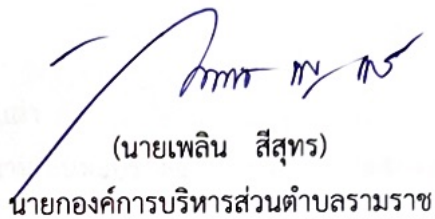 (นายเพลิน สีสุทร)
นายกองค์การบริหารส่วนตำบลรามราช